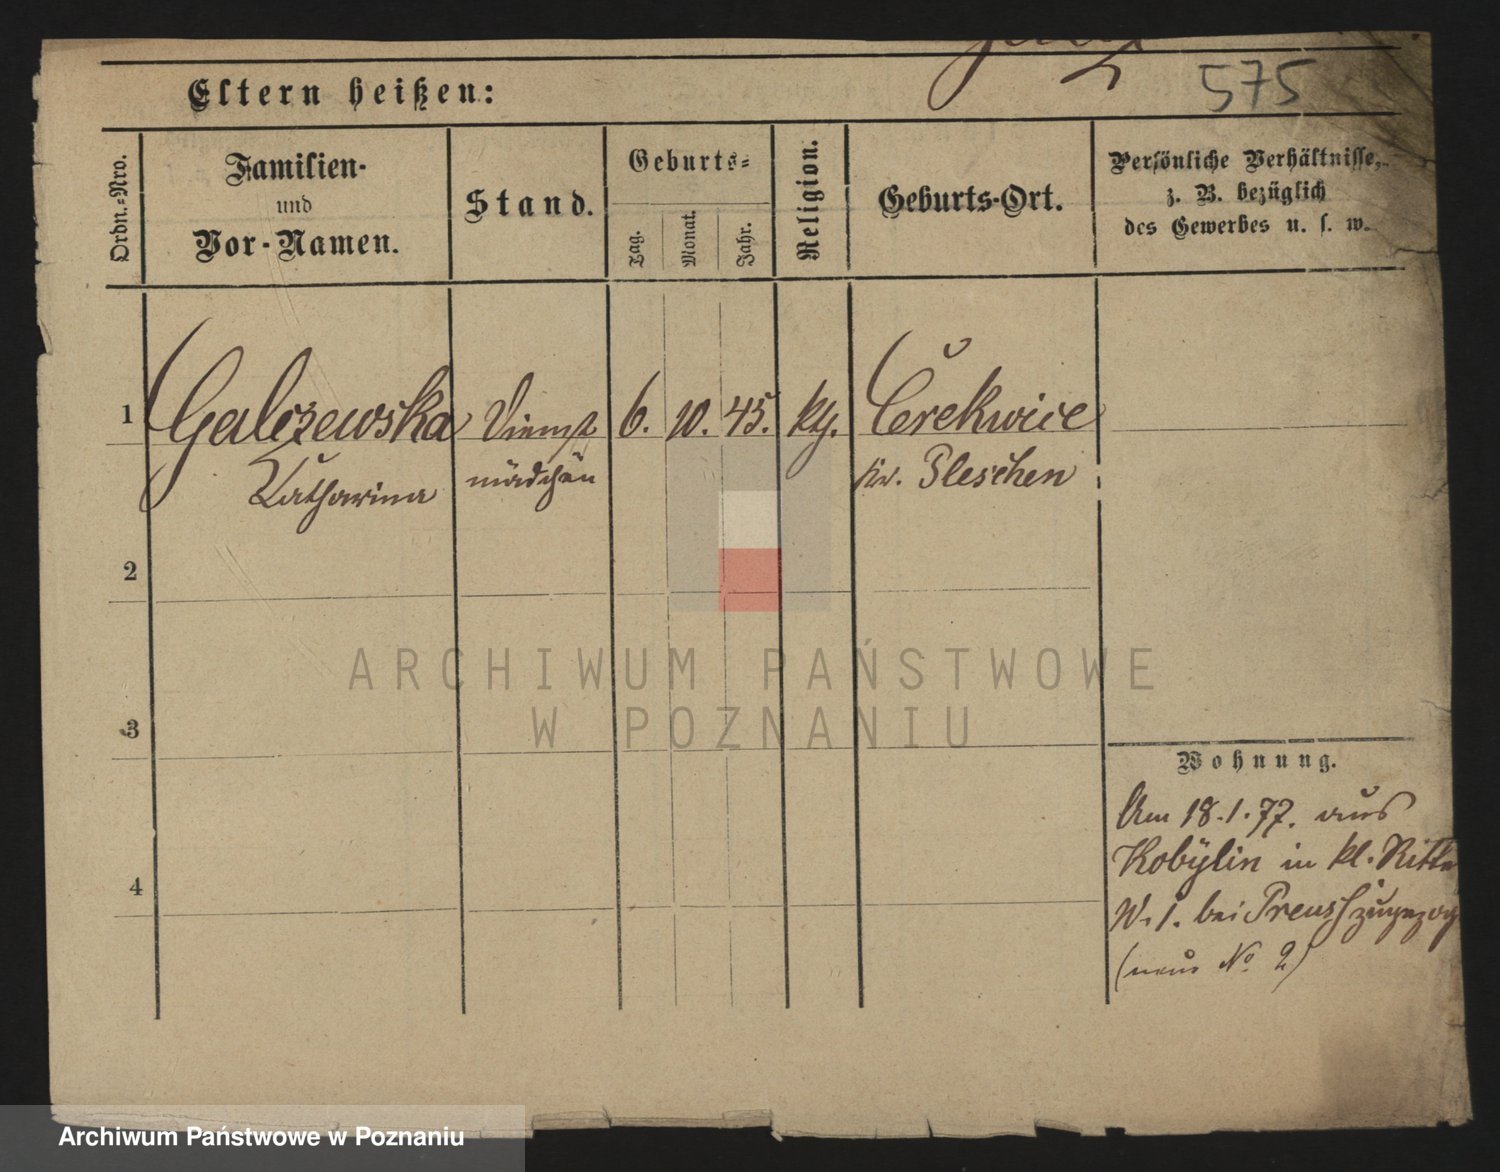 575
Eltern heißen:
Ordn.-Nro.
Familien-
und
Vor-Namen.
Stand.
Geburts-
Tag.
Monat.
Jahr.
Religion.
Geburts-Ort.
Persönliche Verhältnisse,
z. B. bezüglich
des Gewerbes u. s. w.
1 Galczewska Dienst 6. 10. 45. ktg. Cerekwice
Catharina mädchen Kr. Pleschen
2
ARCHIWUM PAŃSTWOWE
W POZNANIU
3
Wohnung.
Am 18.1.77. aus
Kobylin in kl. Ritte
N. 1. bei Preuss zugezog
(neue No 2)
4
Archiwum Państwowe w Poznaniu